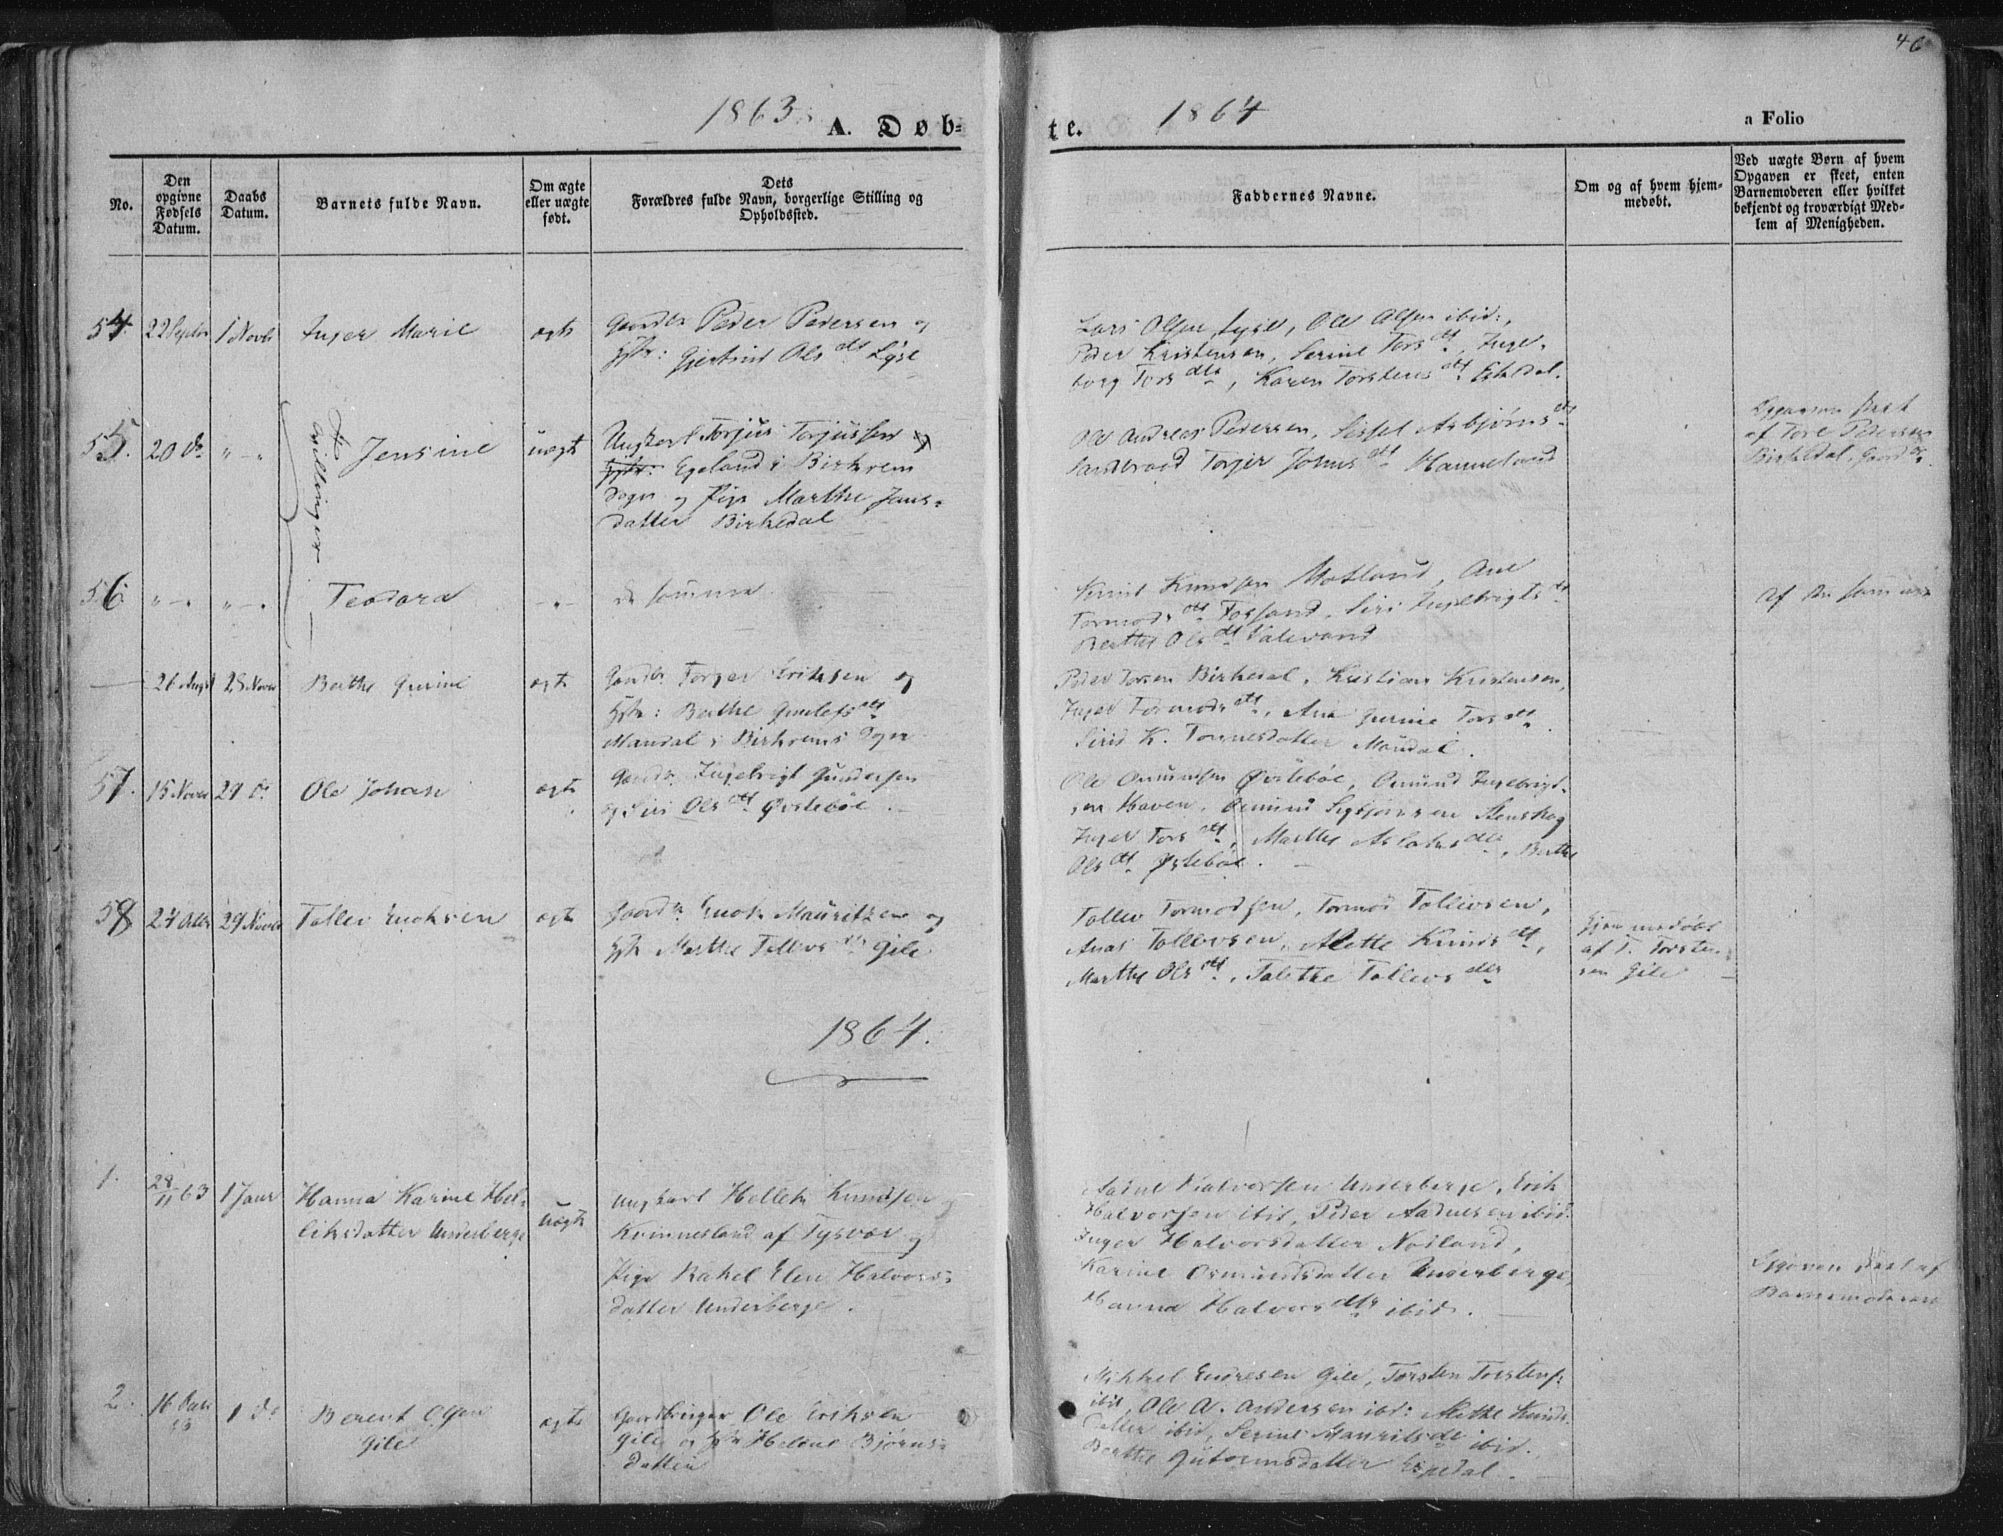 46
1863.
A. Døb-
te.
1864
a Folio
No.
Den
opgivne
Fødsels
Datum.
Daabs
Datum.
Barnets fulde Navn.
Om ægte
eller uægte
født.
Dets
Forældres fulde Navn, borgerlige Stilling og
Opholdssted.
Faddernes Navne.
Om og af hvem hjem-
medøbt.
Ved uægte Børn af hvem
Opgaven er skeet, enten
Barnemoderen eller hvilket
bekjendt og troværdigt Med-
lem af Menigheden.
54.
22 Septbr
1 Novbr
Inger Marie
ægte
Gaardbr Peder Pedersen og
Hstr: Gjertine Olsdtr Lyse
Lars Olsen Lyse, Ole Olsen ibid:,
Peder Kristensen, Serine Torsdtr, Inge-
borg Torsdtr, Karen Torstensdtr Eikedal.
55.
20 do
"-"
Tvillinger
Jensine
uægte
Ungkarl Torjus Torjussen
Egeland i Birkrem
Sogn og Pige Marthe Jans-
datter Birkedal
Ole Andreas Pedersen, Sissel Asbjørnsdtr
Sandvand Torger Johnsdtr Hanneland
Opgaven skeet
af Tore Pedersen
Birkedal, Gaardbr
56.
"-"
"-"
Teodora
-"-
de samme
Knudsen Motland, Ane
Tormodsdtr Fossand, Siri Ingebrigtsdtr
Berthe Olsdtr
af den samme
26 Augst
28 Novbr
Berthe Gurine
ægte
Gaardbr Torger Eriksen og
Hstr: Berthe Gunlefsdtr
Mandal i Birkrems Sogn
Peder Torsen Birkedal, Kristian Kristensen,
Inger Tormodsdtr, Ane Gurine Torsdtr
Siris K. Tonnesdatter Mandal.
57.
15 Novbr
29 do
Ole Johan
ægte
Gaardbr Ingebrigt Gundersen
og Siri Olsdtr Øvstebøe.
Ole Osmundsen Øvstebøe, Osmund Ingebrigt-
sen Haven, Osmund Sigbjørnsen Stenskog
Inger Torsdtr, Marthe Aslaksdtr, Berthe
Olsdtr Østebøe.
58
27 Octbr
29 Novbr
Tollev Enoksen
ægte
Gaardbr Enok Mauritzen og
Hstr Marthe Tollevsdtr Gile
Tollev Tormodsen, Tormod Tollevsen,
Anas Tollevsen, Alette Knudsdtr,
Marthe Olsdtr, Talette Tollevsdtr
Hjemmedøbt
af T. Torsten-
sen Gile
1864.
1.
28/11 63
1 Janr
Hanna Karine Hel-
leiksdatter Underberge
uægte
Ungkarl Helleik Knudsen
Kvinnesland af Tysvær og
Pige Rakel Elen Halvors-
datter Underberge.
Aadne Halvorsen Underberge, Erik
Halvorsen ibid, Peder Aadnesen ibid.
Inger Halvorsdatter Nodland,
Karine Osmundsdatter Underberge,
Hanna Halvorsdtr ibid.
Opgaven skeet af
Barnemoderen
2.
16
63
1 do
Berent Olsen
Gile
ægte
Gaardbruger Ole Eriksen
Gile og Hstr Helene Bjørns-
datter
Mikkel Endresen Gile, Torsten Torstens.
ibid, Ole A. Andersen ibd: Alethe Knuds-
datter ibid, Serine Mauritsdtr ibid.
Berthe Gutormsdatter Espedal.